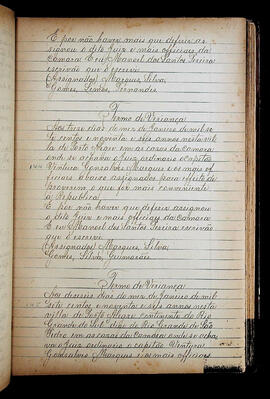 E por não haver mais que deferir as-
signou o dito Juiz e mais officiaes da
Camara E eu Manoel dos Santos Freira
escrivão que o escrevi.
(Assignados) Marques, Silva,
Gomes, Fernandes
Termo de Veriança
Aos treze dias do mez de Janeiro de mil se-
te centos e noventa e seis annos nesta vil-
la de Porto Alegre em as casas da camara
onde se achava o juiz ordinario o capitão
Ventura Gonsalves Marques e os mais of-
ficiaes abaixo assignados para effeito de
proverem o que for mais conveniente
a Republica
E por não haver que deferir assignou
o dito Juiz e mais officiaes da camara
E eu Manoel dos Santos Freira escrivão
que o escrevi
(Assignados) Marques, Silva
Gomes, Silva, Guimarães
Termo de Veriança
Aos dezeseis dias do mez de Janeiro de mil
sete centos e noventa e seis annos nesta
villa de Porto Alegre continente do Rio
Grande do Rio Grande de São
Pedro em as casas da camara onde se acha-
va o juiz ordinario o capitão Ventura
Gonsalves Marques e os mais officiaes